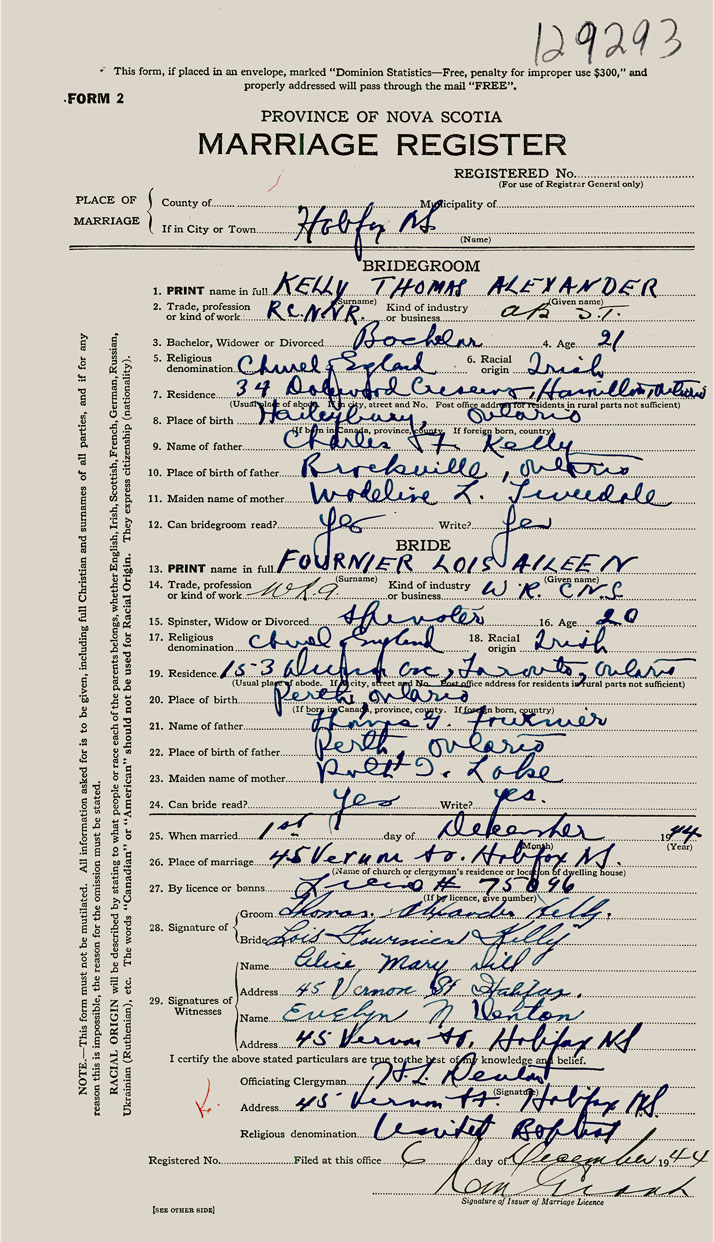 129293
This form, if placed in an envelope, marked "Dominion Statistics—Free, penalty for improper use $300," and
properly addressed will pass through the mail "FREE".
FORM 2
PROVINCE OF NOVA SCOTIA
MARRIAGE REGISTER
REGISTERED No.
(For use of Registrar General only)
PLACE OF MARRIAGE
County of Municipality of
If in City or Town Halifax NS
(Name)
BRIDEGROOM
1. PRINT name in full KELLY THOMAS ALEXANDER
(Surname) (Given name)
2. Trade, profession or kind of work R.C.N.V.R. Kind of industry or business AB S.T.
3. Bachelor, Widower or Divorced Bachelor 4. Age 21
5. Religious denomination Church of England 6. Racial origin Irish
7. Residence 34 Crescent, Hamilton, Ontario
(Usual place of abode. If in city, street and No. Post office address for residents in rural parts not sufficient)
8. Place of birth Haileybury, Ontario
(If born in Canada, province, county. If foreign born, country)
9. Name of father Charles Kelly
10. Place of birth of father Brockville, Ontario
11. Maiden name of mother Madeline L. Tweedale
12. Can bridegroom read? yes Write? yes
BRIDE
13. PRINT name in full FOURNIER LOIS AILEEN
(Surname) (Given name)
14. Trade, profession or kind of work Kind of industry or business W.R.C.N.S.
15. Spinster, Widow or Divorced Spinster 16. Age 20
17. Religious denomination Church of England 18. Racial origin Irish
19. Residence 153 ave, Toronto, Ontario
(Usual place of abode. If in city, street and No. Post office address for residents in rural parts not sufficient)
20. Place of birth Perth, Ontario
(If born in Canada, province, county. If foreign born, country)
21. Name of father Thomas Fournier
22. Place of birth of father Perth, Ontario
23. Maiden name of mother Lake
24. Can bride read? yes Write? yes.
25. When married 1st day of December 1944
(Month) (Year)
26. Place of marriage 45 Vernon St. Halifax NS.
(Name of church or clergyman's residence or location of dwelling house)
27. By licence or banns License # 75896
(If by licence, give number)
28. Signature of
Groom Thomas Alexander Kelly.
Bride Lois Fournier Kelly
29. Signatures of Witnesses
Name Alice Mary Dill
Address 45 Vernon St Halifax.
Name Evelyn N Denton
Address 45 Vernon St. Halifax NS
I certify the above stated particulars are true to the best of my knowledge and belief.
Officiating Clergyman Denton
(Signature)
Address 45 Vernon St. Halifax N.S.
Religious denomination United Baptist
Registered No. Filed at this office 6 day of December 1944
Signature of Issuer of Marriage Licence
[SEE OTHER SIDE]
NOTE.—This form must not be mutilated. All information asked for is to be given, including full Christian and surnames of all parties, and if for any
reason this is impossible, the reason for the omission must be stated.
RACIAL ORIGIN will be described by stating to what people or race each of the parents belongs, whether English, Irish, Scottish, French, German, Russian,
Ukrainian (Ruthenian), etc. The words "Canadian" or "American" should not be used for Racial Origin. They express citizenship (nationality).